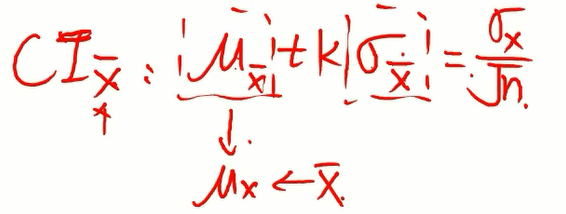 CI x̄ : μx̄ + k σx̄ = σx/√n
μx ← x̄